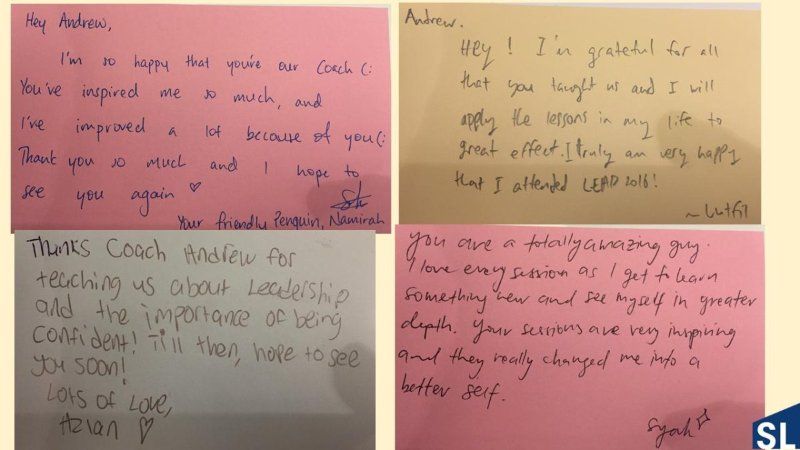 Hey Andrew,
I'm so happy that you're our Coach (:
You've inspired me so much, and
I've improved a lot because of you(:
Thank you so much and I hope to
see you again ♡
Your friendly Penguin, Namirah
Andrew.
Hey! I'm grateful for all
that you taught us and I will
apply the lessons in my life to
great effect. I truly am very happy
that I attended LEAD 2016!
~ Lutfil
Thanks Coach Andrew for
teaching us about Leadership
and the importance of being
confident! Till then, hope to see
you soon!
Lots of Love,
Azian ♡
You are a totally amazing guy.
I love every session as I get to learn
something new and see myself in greater
depth. Your sessions are very inspiring
and they really changed me into a
better self.
Syah
SL